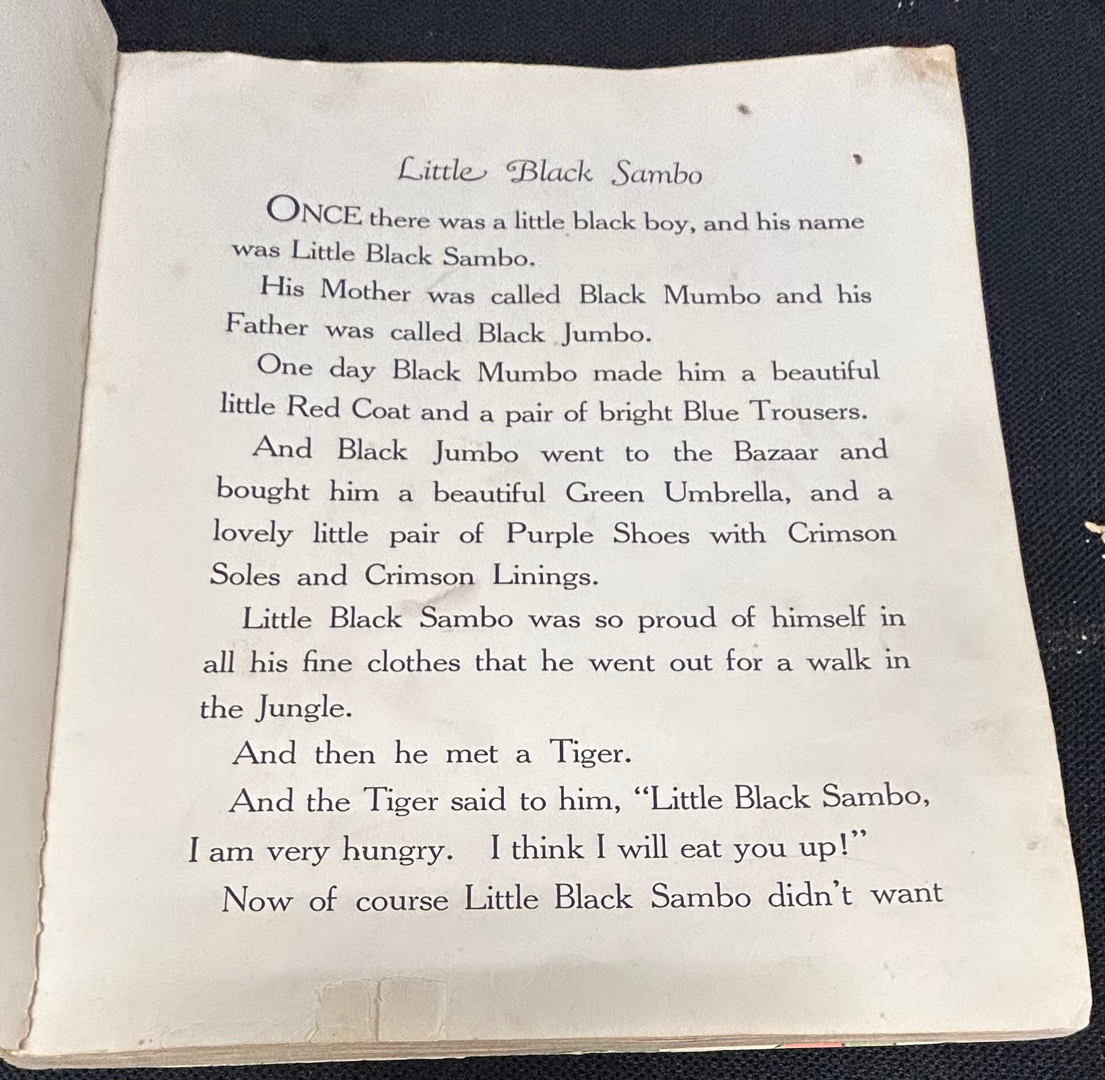 Little Black Sambo
ONCE there was a little black boy, and his name
was Little Black Sambo.
His Mother was called Black Mumbo and his
Father was called Black Jumbo.
One day Black Mumbo made him a beautiful
little Red Coat and a pair of bright Blue Trousers.
And Black Jumbo went to the Bazaar and
bought him a beautiful Green Umbrella, and a
lovely little pair of Purple Shoes with Crimson
Soles and Crimson Linings.
Little Black Sambo was so proud of himself in
all his fine clothes that he went out for a walk in
the Jungle.
And then he met a Tiger.
And the Tiger said to him, “Little Black Sambo,
I am very hungry. I think I will eat you up!”
Now of course Little Black Sambo didn’t want